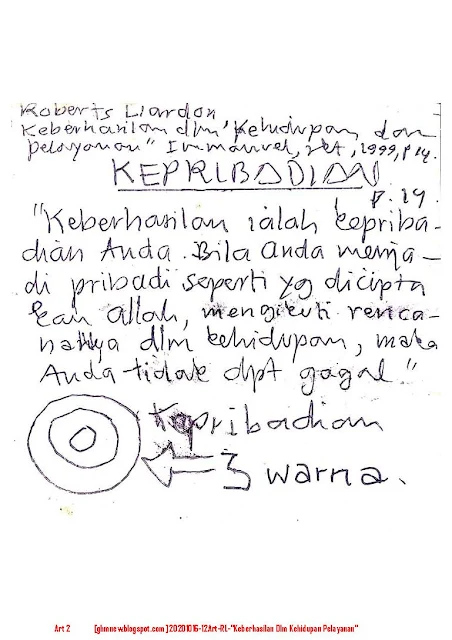 Roberts Liardon
Keberhasilan dlm "Kehidupan dan
pelayanan" Immanuel, Jkt, 1999, p 14.
KEPRIBADIAN
p. 14.
"Keberhasilan ialah kepriba-
dian Anda. Bila Anda menja-
di pribadi seperti yg dicipta
kan Allah, mengikuti renca-
naNya dlm kehidupan, maka
Anda tidak dpt gagal."
Kepribadian
3 warna.
Art 2 [ghmnewblogspot.com ] 20201016-12Art-RL-"Keberhasilan Dlm Kehidupan Pelayanan"